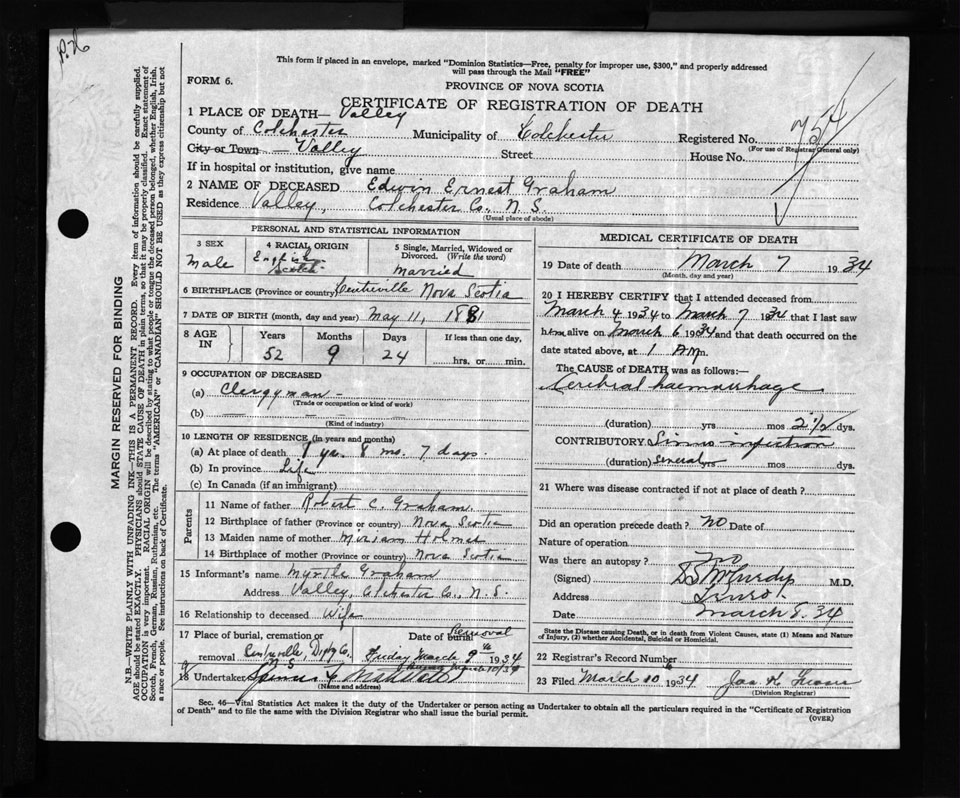 P. 26
This form if placed in an envelope, marked "Dominion Statistics—Free, penalty for improper use, $300," and properly addressed
will pass through the Mail "FREE"
FORM 6.
PROVINCE OF NOVA SCOTIA
CERTIFICATE OF REGISTRATION OF DEATH
1 PLACE OF DEATH— Valley
County of Colchester Municipality of Colchester Registered No. 754
(For use of Registrar General only)
City or Town — Valley Street House No.
If in hospital or institution, give name
2 NAME OF DECEASED Edwin Ernest Graham
Residence Valley, Colchester Co., N.S.
(Usual place of abode)
PERSONAL AND STATISTICAL INFORMATION
3 SEX Male
4 RACIAL ORIGIN English Scotch
5 Single, Married, Widowed or Divorced. (Write the word)
Married
6 BIRTHPLACE (Province or country) Centreville Nova Scotia
7 DATE OF BIRTH (month, day and year) May 11, 1881
8 AGE IN Years Months Days If less than one day,
52 9 24 hrs. or min.
9 OCCUPATION OF DECEASED
(a) Clergyman —
(Trade or occupation or kind of work)
(b) — — — —
(Kind of industry)
10 LENGTH OF RESIDENCE (in years and months)
(a) At place of death 8 mo. 7 days.
(b) In province Life
(c) In Canada (if an immigrant)
Parents
11 Name of father Robert C. Graham.
12 Birthplace of father (Province or country) Nova Scotia
13 Maiden name of mother Miriam Holmes
14 Birthplace of mother (Province or country) Nova Scotia
15 Informant's name Myrtle Graham
Address Valley, Colchester Co., N.S.
16 Relationship to deceased Wife
17 Place of burial, cremation or Date of burial Removal
removal Centreville, Digby Co. Friday March 9th 1934
N S
18 Undertaker
(Name and address)
MEDICAL CERTIFICATE OF DEATH
19 Date of death March 7 1934
(Month, day and year)
20 I HEREBY CERTIFY that I attended deceased from
March 4 1934 to March 7 1934 that I last saw
him alive on March 6 1934 and that death occurred on the
date stated above, at 1 A.m.
The CAUSE of DEATH was as follows:—
Cerebral haemorrhage
(duration) yrs mos 2½ dys.
CONTRIBUTORY Sinus infection
(duration) several yrs mos dys.
21 Where was disease contracted if not at place of death?
Did an operation precede death? NO Date of
Nature of operation
Was there an autopsy? no
(Signed) McCurdy M.D.
Address Truro.
Date March 8. 34
State the Disease causing Death, or in death from Violent Causes, state (1) Means and Nature
of Injury, (2) whether Accidental, Suicidal or Homicidal.
22 Registrar's Record Number
23 Filed March 10 1934 Jas. H.
(Division Registrar)
Sec. 46—Vital Statistics Act makes it the duty of the Undertaker or person acting as Undertaker to obtain all the particulars required in the "Certificate of Registration
of Death" and to file the same with the Division Registrar who shall issue the burial permit.
(OVER)
MARGIN RESERVED FOR BINDING
N.B.—WRITE PLAINLY WITH UNFADING INK—THIS IS A PERMANENT RECORD. Every item of information should be carefully supplied.
AGE should be stated EXACTLY. PHYSICIANS should STATE CAUSE OF DEATH in plain terms, so that it may be properly classified. Exact statement of
OCCUPATION is very important. RACIAL ORIGIN will be described by stating to what people or tongue the deceased person belonged, whether English, Irish,
Scotch, French, German, Russian, Ruthenian, etc. The terms "AMERICAN" or "CANADIAN" SHOULD NOT BE USED as they express citizenship but not
a race or people. See instructions on back of Certificate.